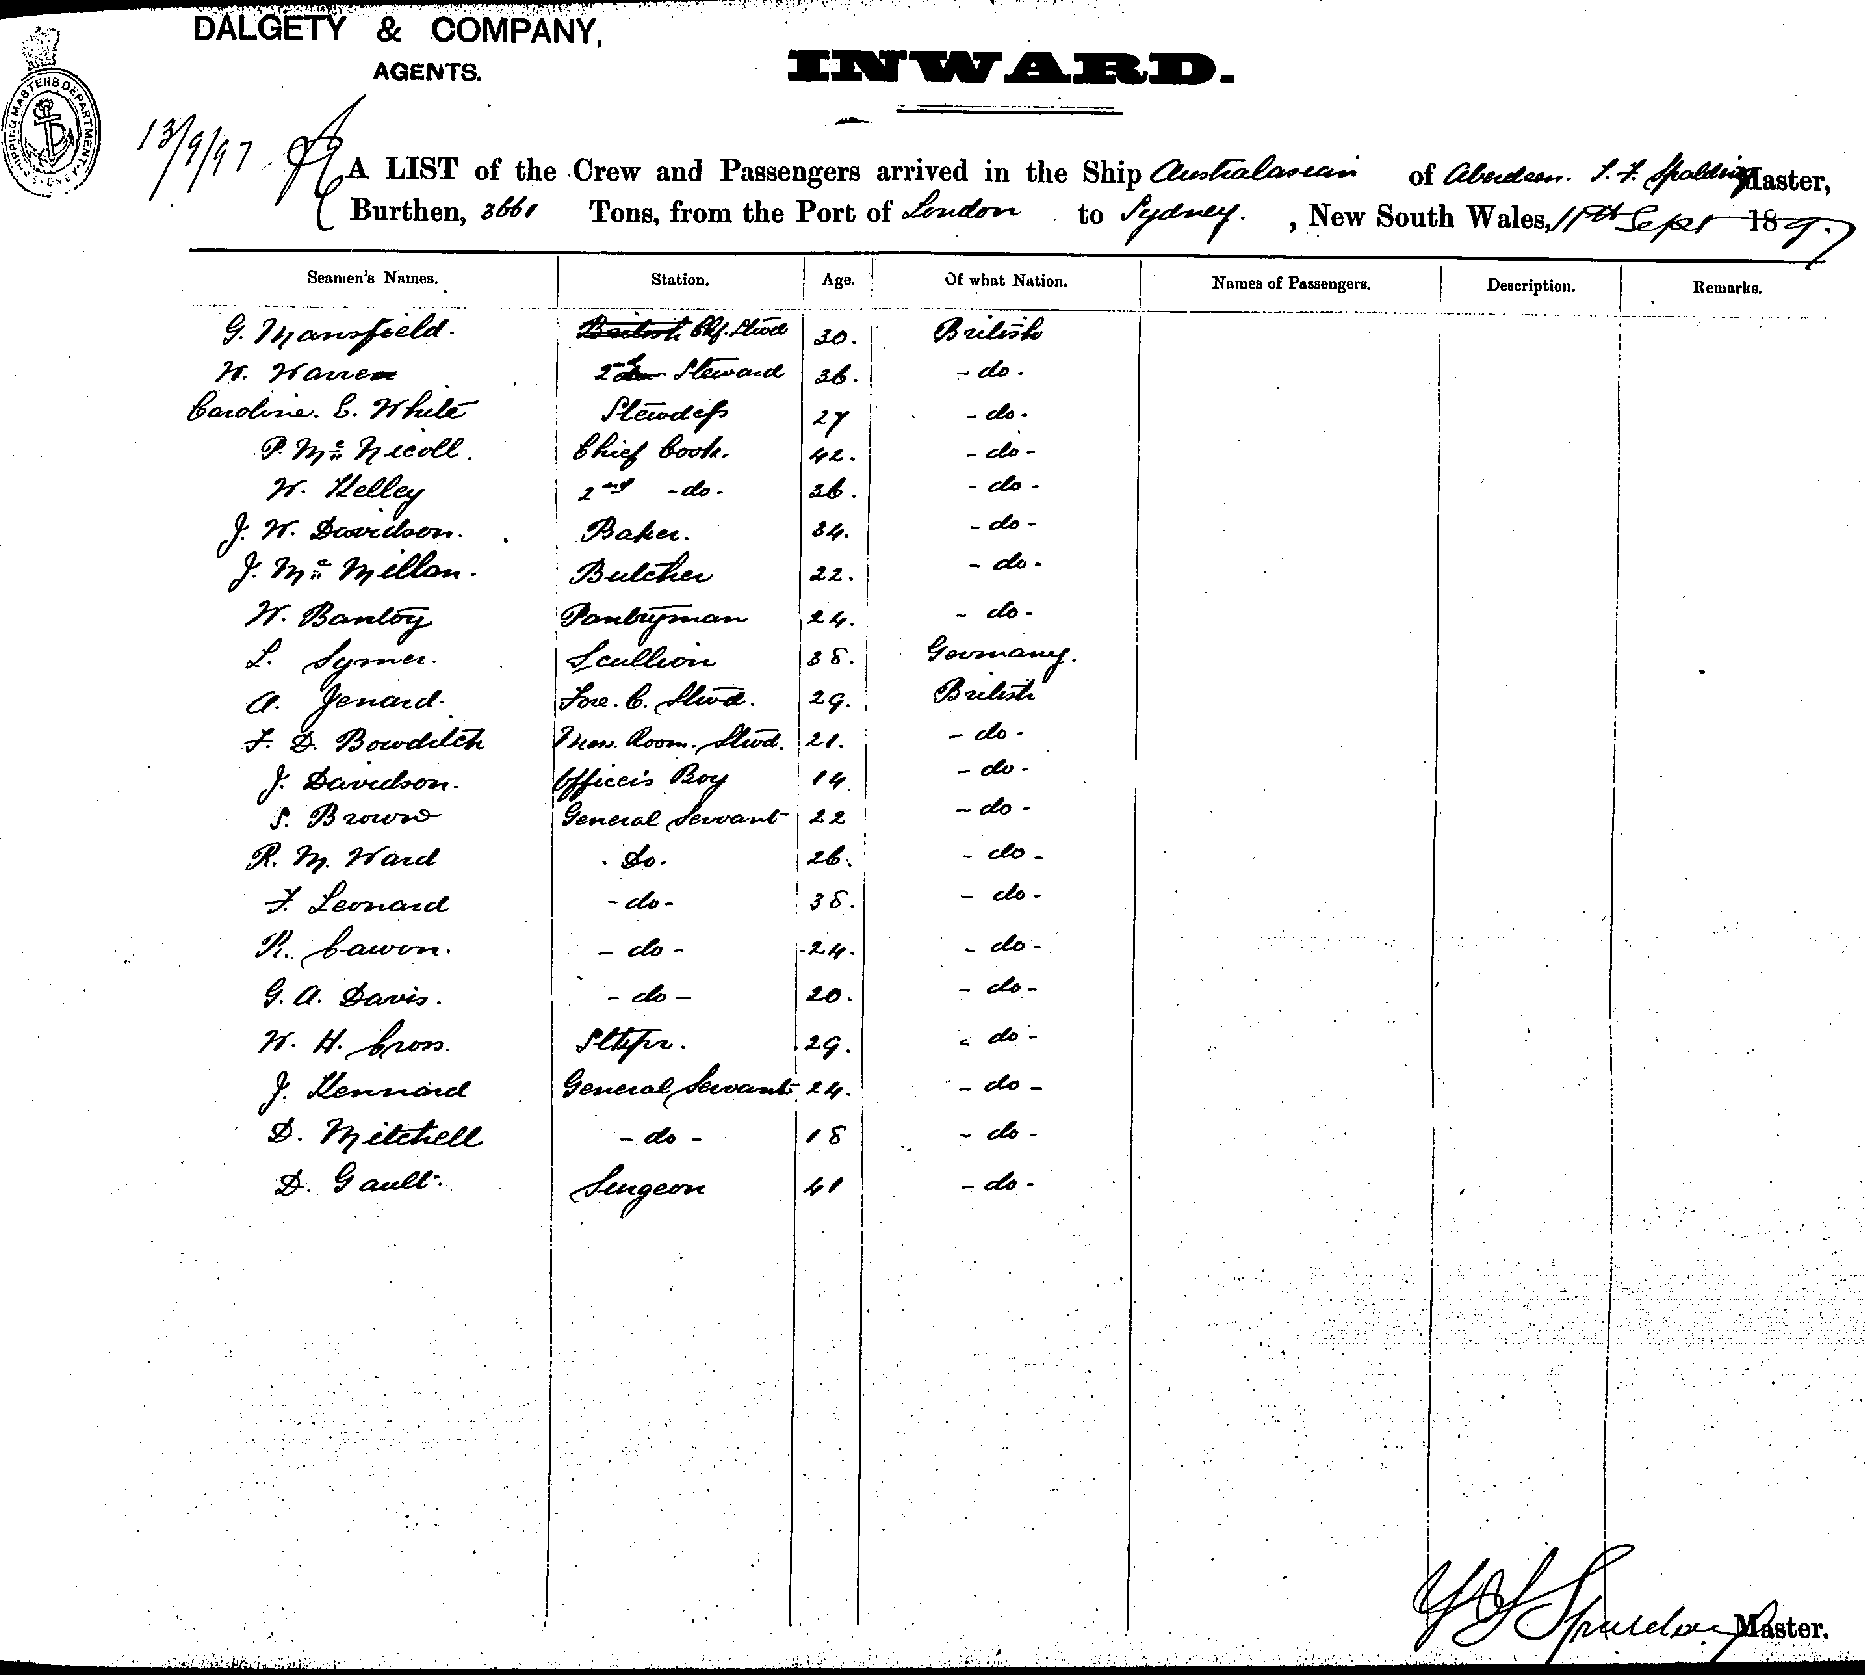 DALGETY & COMPANY,
AGENTS.
INWARD.
SHIPPING MASTERS DEPARTMENT
13/9/97
A LIST of the Crew and Passengers arrived in the Ship Australasian of Aberdeen. S. F. Spalding Master,
Burthen, 3661 Tons, from the Port of London to Sydney. , New South Wales, 11th Sept 1897
Seamen's Names. Station. Age. Of what Nation. Names of Passengers. Description. Remarks.
G. Mansfield. British Chf. Stwd 30. British
W. Warren 2nd Steward 36. - do -
Caroline. E. White Stewdess 27 - do -
P. Mc Nicoll. Chief Cook. 42. - do -
W. Kelley 2nd - do - 36. - do -
J. W. Davidson. Baker. 34. - do -
J. Mc Millan. Butcher 22. - do -
W. Bantoy Pantryman 24. - do -
L. Symer. Scullion 38. Germany.
A. Jenard. Fore. C. Stwd. 29. British
F. D. Bowditch Mess. Room. Stwd. 21. - do -
J. Davidson. Officers Boy 14 - do -
S. Brown General Servant 22 - do -
R. M. Ward Do. 26. - do -
F. Leonard - do - 38. - do -
R. Cawon. - do - 24. - do -
G. A. Davis. - do - 20. - do -
W. H. Cross. 29. - do -
J. Kennard General Servant 24. - do -
D. Mitchell - do - 18 - do -
D. Gault. Surgeon 41 - do -
Master.